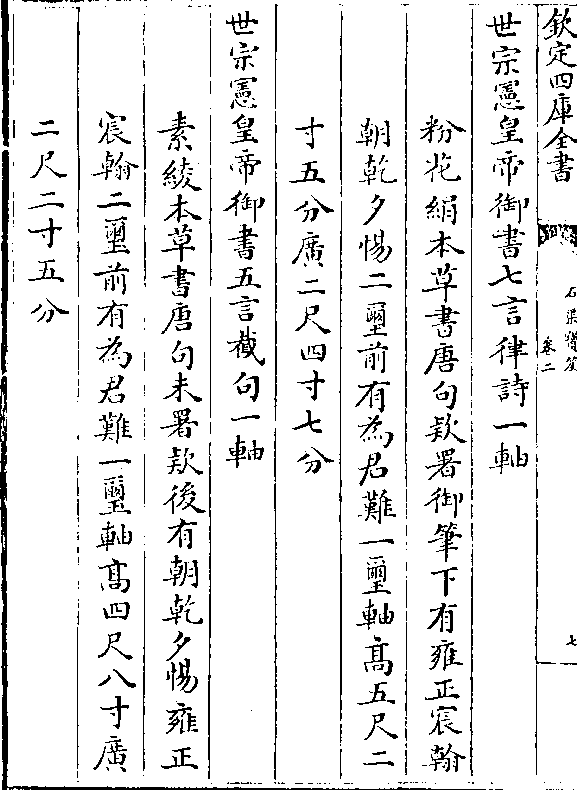 欽定四庫全書
石渠寶笈
卷二
七
世宗憲皇帝御書七言律詩一軸
粉花絹本草書唐句欵署御筆下有雍正宸翰
朝乾夕惕二璽前有為君難一璽軸髙五尺二
寸五分廣二尺四寸七分
世宗憲皇帝御書五言截句一軸
素綾本草書唐句未署欵後有朝乾夕惕雍正
宸翰二璽前有為君難一璽軸髙四尺八寸廣
二尺二寸五分